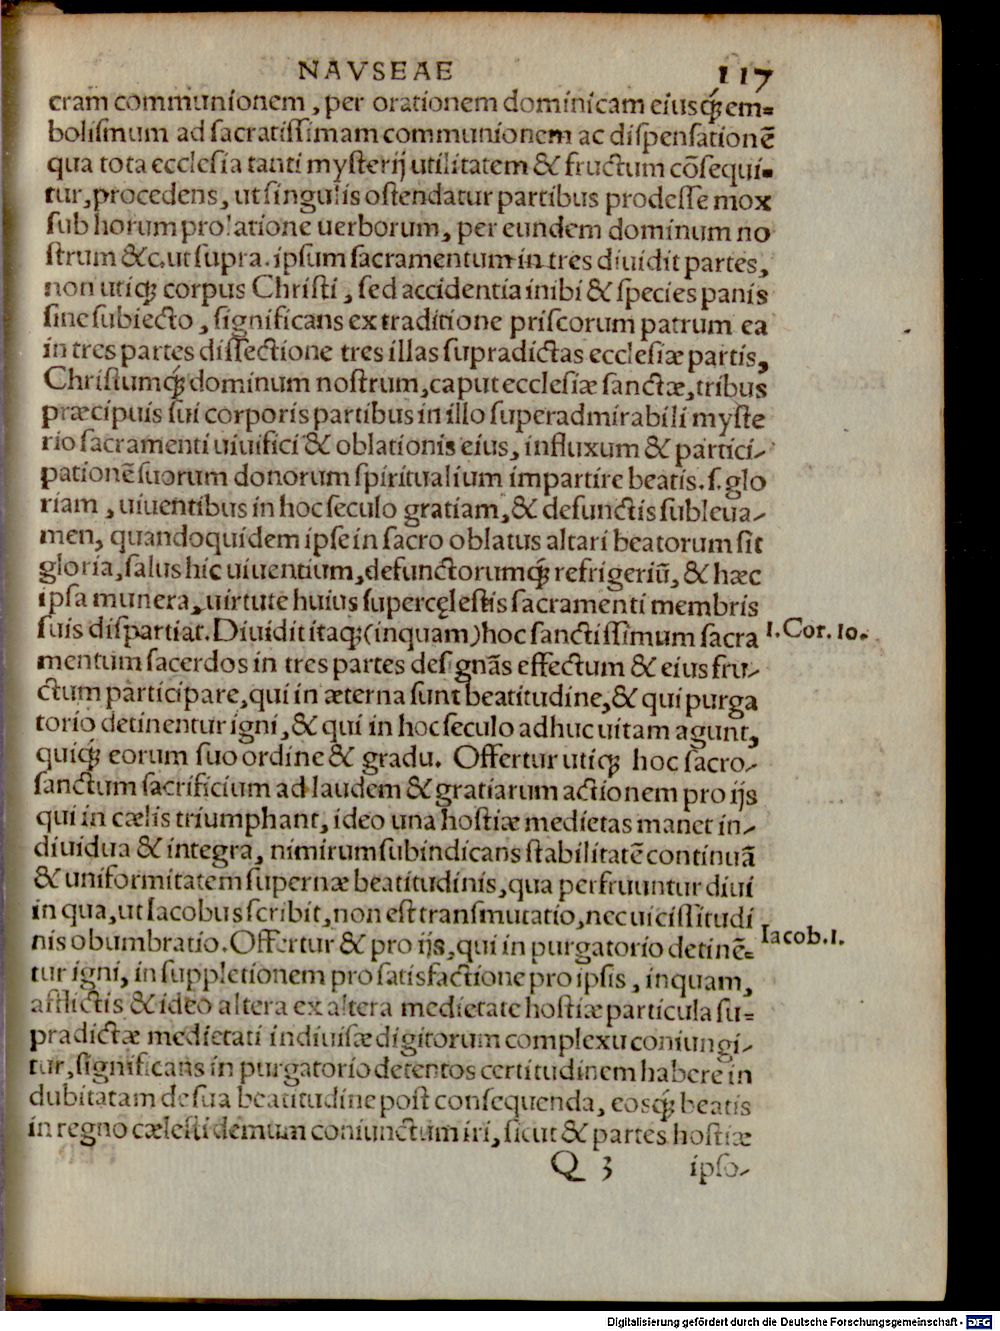 NAVSEAE 117
cram communionem, per orationem dominicam eiusq́; em-
bolismum ad sacratissimam communionem ac dispensationẽ
qua tota ecclesia tanti mysterij utilitatem & fructum cõsequi-
tur, procedens, ut singulis ostendatur partibus prodesse mox
sub horum prolatione uerborum, per eundem dominum no
strum &c. ut supra. ipsum sacramentum in tres diuidit partes,
non utiq; corpus Christi, sed accidentia inibi & species panis
sine subiecto, significans ex traditione priscorum patrum ea
in tres partes dissectione tres illas supradictas ecclesiæ partis,
Christumq́; dominum nostrum, caput ecclesiæ sanctæ, tribus
præcipuis sui corporis partibus in illo superadmirabili myste
rio sacramenti uiuifici & oblationis eius, influxum & partici-
pationẽ suorum donorum spiritualium impartire beatis. s. glo
riam, uiuentibus in hoc seculo gratiam, & defunctis subleua-
men, quandoquidem ipse in sacro oblatus altari beatorum sit
gloria, salus hic uiuentium, defunctorumq́; refrigeriũ, & hæc
ipsa munera, uirtute huius supercęlestis sacramenti membris
suis dispartiat. Diuidit itaq; (inquam) hoc sanctissimum sacra
1. Cor. 10.
mentum sacerdos in tres partes designãs effectum & eius fru-
ctum participare, qui in æterna sunt beatitudine, & qui purga
torio detinentur igni, & qui in hoc seculo adhuc uitam agunt,
quiq́; eorum suo ordine & gradu. Offertur utiq; hoc sacro-
sanctum sacrificium ad laudem & gratiarum actionem pro ijs
qui in cælis triumphant, ideo una hostiæ medietas manet in-
diuidua & integra, nimirum subindicans stabilitatẽ continuã
& uniformitatem supernæ beatitudinis, qua perfruuntur diui
in qua, ut Iacobus scribit, non est transmutatio, nec uicissitudi
Iacob. 1.
nis obumbratio. Offertur & pro ijs, qui in purgatorio detinẽ-
tur igni, in suppletionem pro satisfactione pro ipsis, inquam,
afflictis & ideo altera ex altera medietate hostiæ particula su-
pradictæ medietati indiuisæ digitorum complexu coniungi-
tur, significans in purgatorio detentos certitudinem habere in
dubitatam de sua beatitudine post consequenda, eosq́; beatis
in regno cælesti demum coniunctum iri, sicut & partes hostiæ
Q 3 ipso-
Digitalisierung gefördert durch die Deutsche Forschungsgemeinschaft - DFG